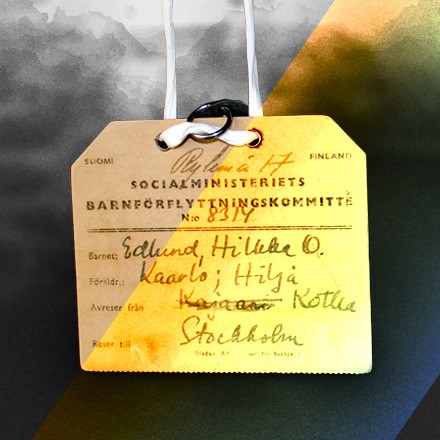 SUOMI FINLAND
SOCIALMINISTERIETS
BARNFÖRFLYTTNINGSKOMMITTÉ
N:o 8314
Barnet: Edlund, Hilkka O.
Föräldr.: Kaarlo; Hilja
Avreser från Kajaani Kotka
Reser till Stockholm